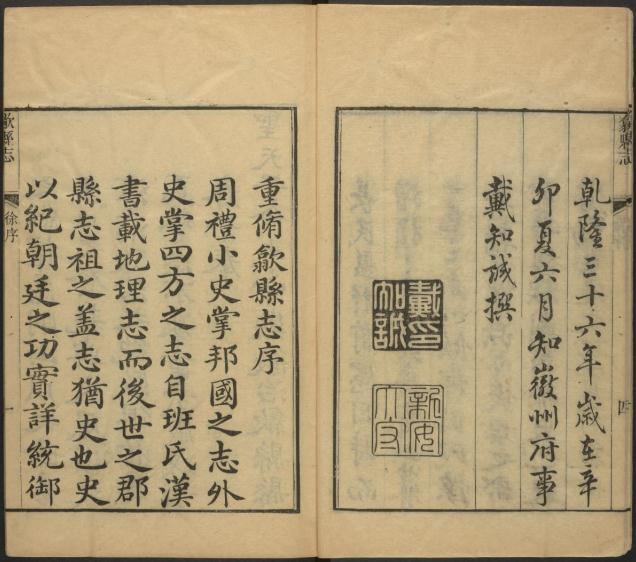 乾隆三十六年歲在辛
卯夏六月知徽州府事
戴知誠撰
戴印知誠
歙縣志
四
重脩歙縣志序
周禮小史掌邦國之志外
史掌四方之志自班氏漢
書載地理志而後世之郡
縣志祖之盖志猶史也史
以紀朝廷之功實詳統御
歙縣志
徐序
一